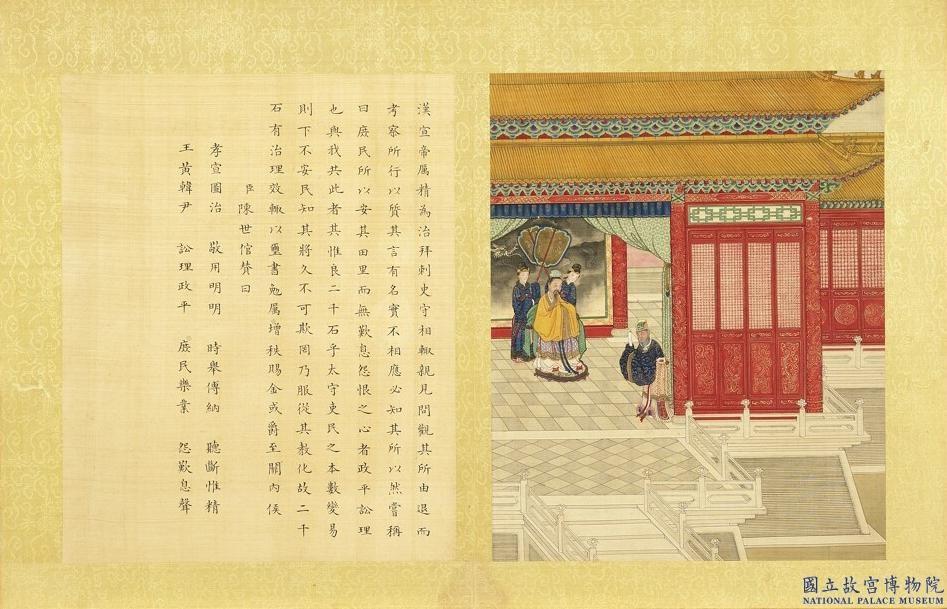 漢宣帝厲精為治拜刺史守相輒親見問觀其所由退而
考察所行以質其言有名實不相應必知其所以然嘗稱
曰庶民所以安其田里而無歎息怨恨之心者政平訟理
也與我共此者其惟良二千石乎太守吏民之本數變易
則下不安民知其將久不可欺罔乃服從其教化故二千
石有治理效輒以璽書勉厲增秩賜金或爵至關內侯
臣陳世倌贊曰
孝宣圖治 敬用明明 時舉傅納 聽斷惟精
王黃韓尹 訟理政平 庶民樂業 怨歎息聲
國立故宮博物院
NATIONAL PALACE MUSEUM